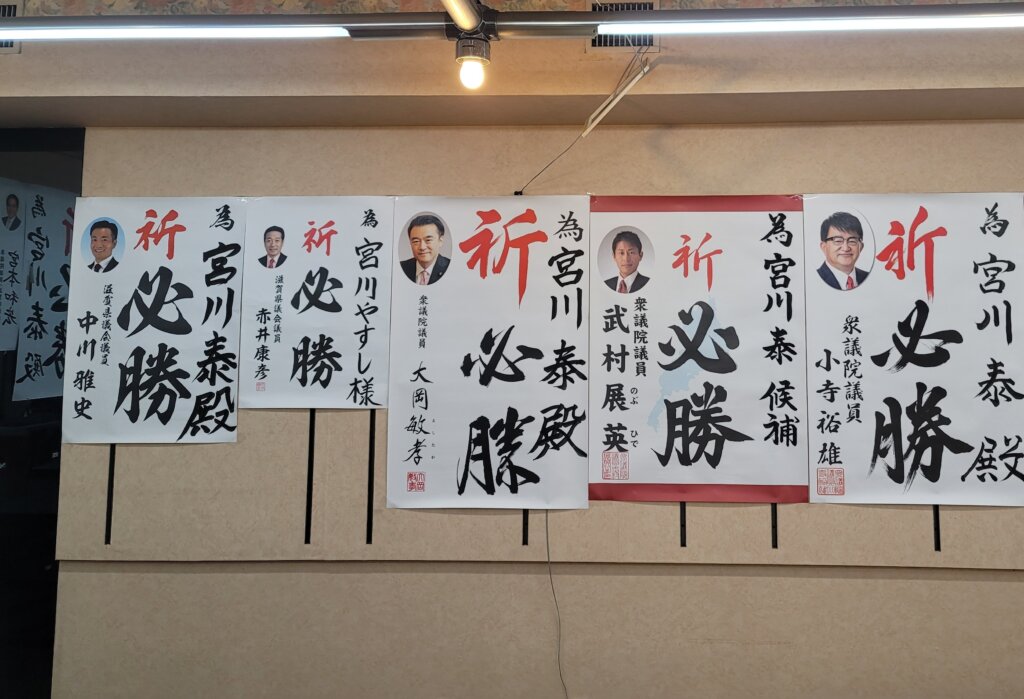 為 宮川 泰 殿
宮本和宏
為 宮川 泰 殿
祈
必勝
滋賀県議会議員
中川 雅史
為 宮川やすし様
祈
必勝
滋賀県議会議員
赤井康彦
為 宮川 泰 殿
祈
必勝
衆議院議員 大岡敏孝
為 宮川 泰 候補
祈
必勝
衆議院議員
武村展英
のぶ ひで
為 宮川 泰 殿
祈
必勝
衆議院議員
小寺裕雄